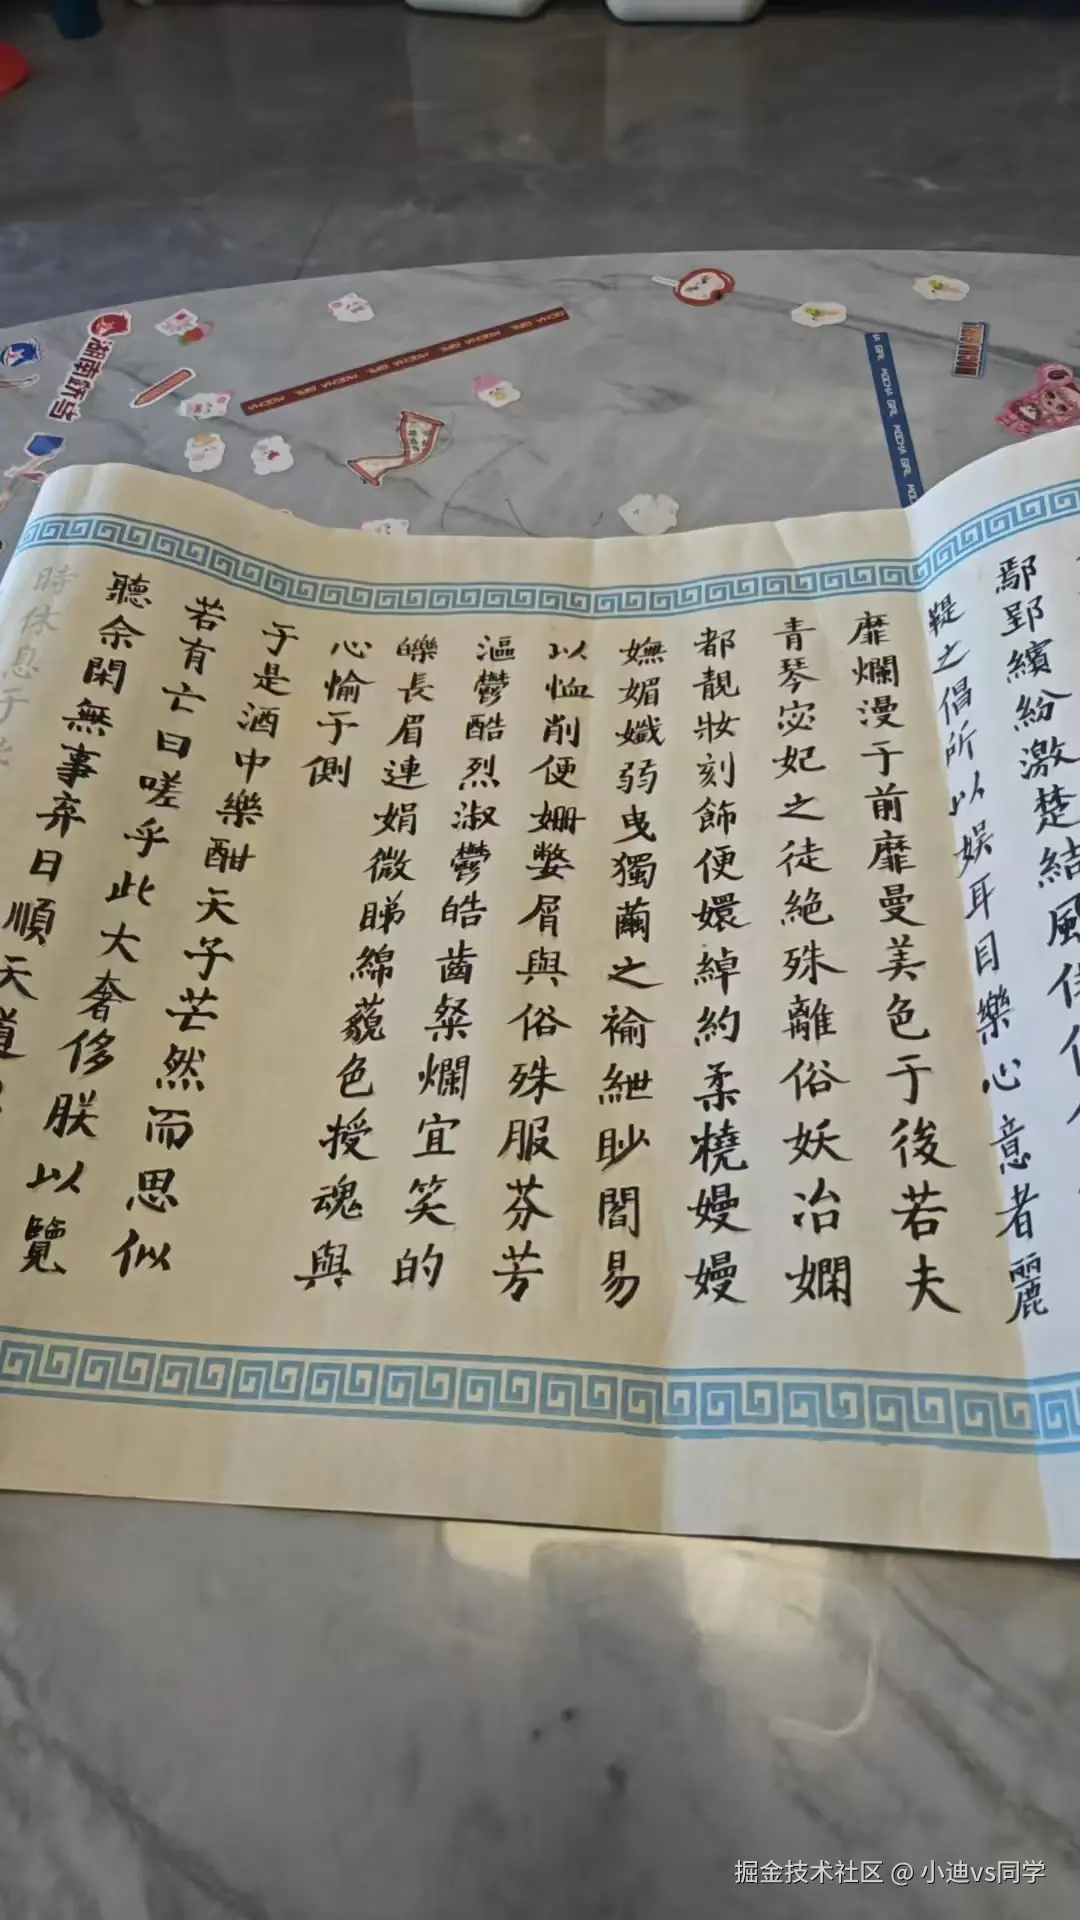 鄢郢繽紛激楚結風
鞮之倡所以娱耳目樂心意者麗
靡爛漫于前靡曼美色于後若夫
青琴宓妃之徒絶殊離俗妖冶嫻
都靚妝刻飾便嬛綽約柔橈嫚嫚
嫵媚孅弱曳獨繭之褕紲眇閻易
以恤削便姗嫳屑與俗殊服芬芳
漚鬱酷烈淑鬱皓齒粲爛宜笑的
皪長眉連娟微睇綿藐色授魂與
心愉于側
于是酒中樂酣天子芒然而思似
若有亡曰嗟乎此大奢侈朕以覽
聽余閑無事弃日順天道
時休息于
MOCHA GIRL MOCHA GIRL MOCHA GIRL MOCHA
MOCHA GIRL MOCHA GIRL
掘金技术社区 @ 小迪vs同学